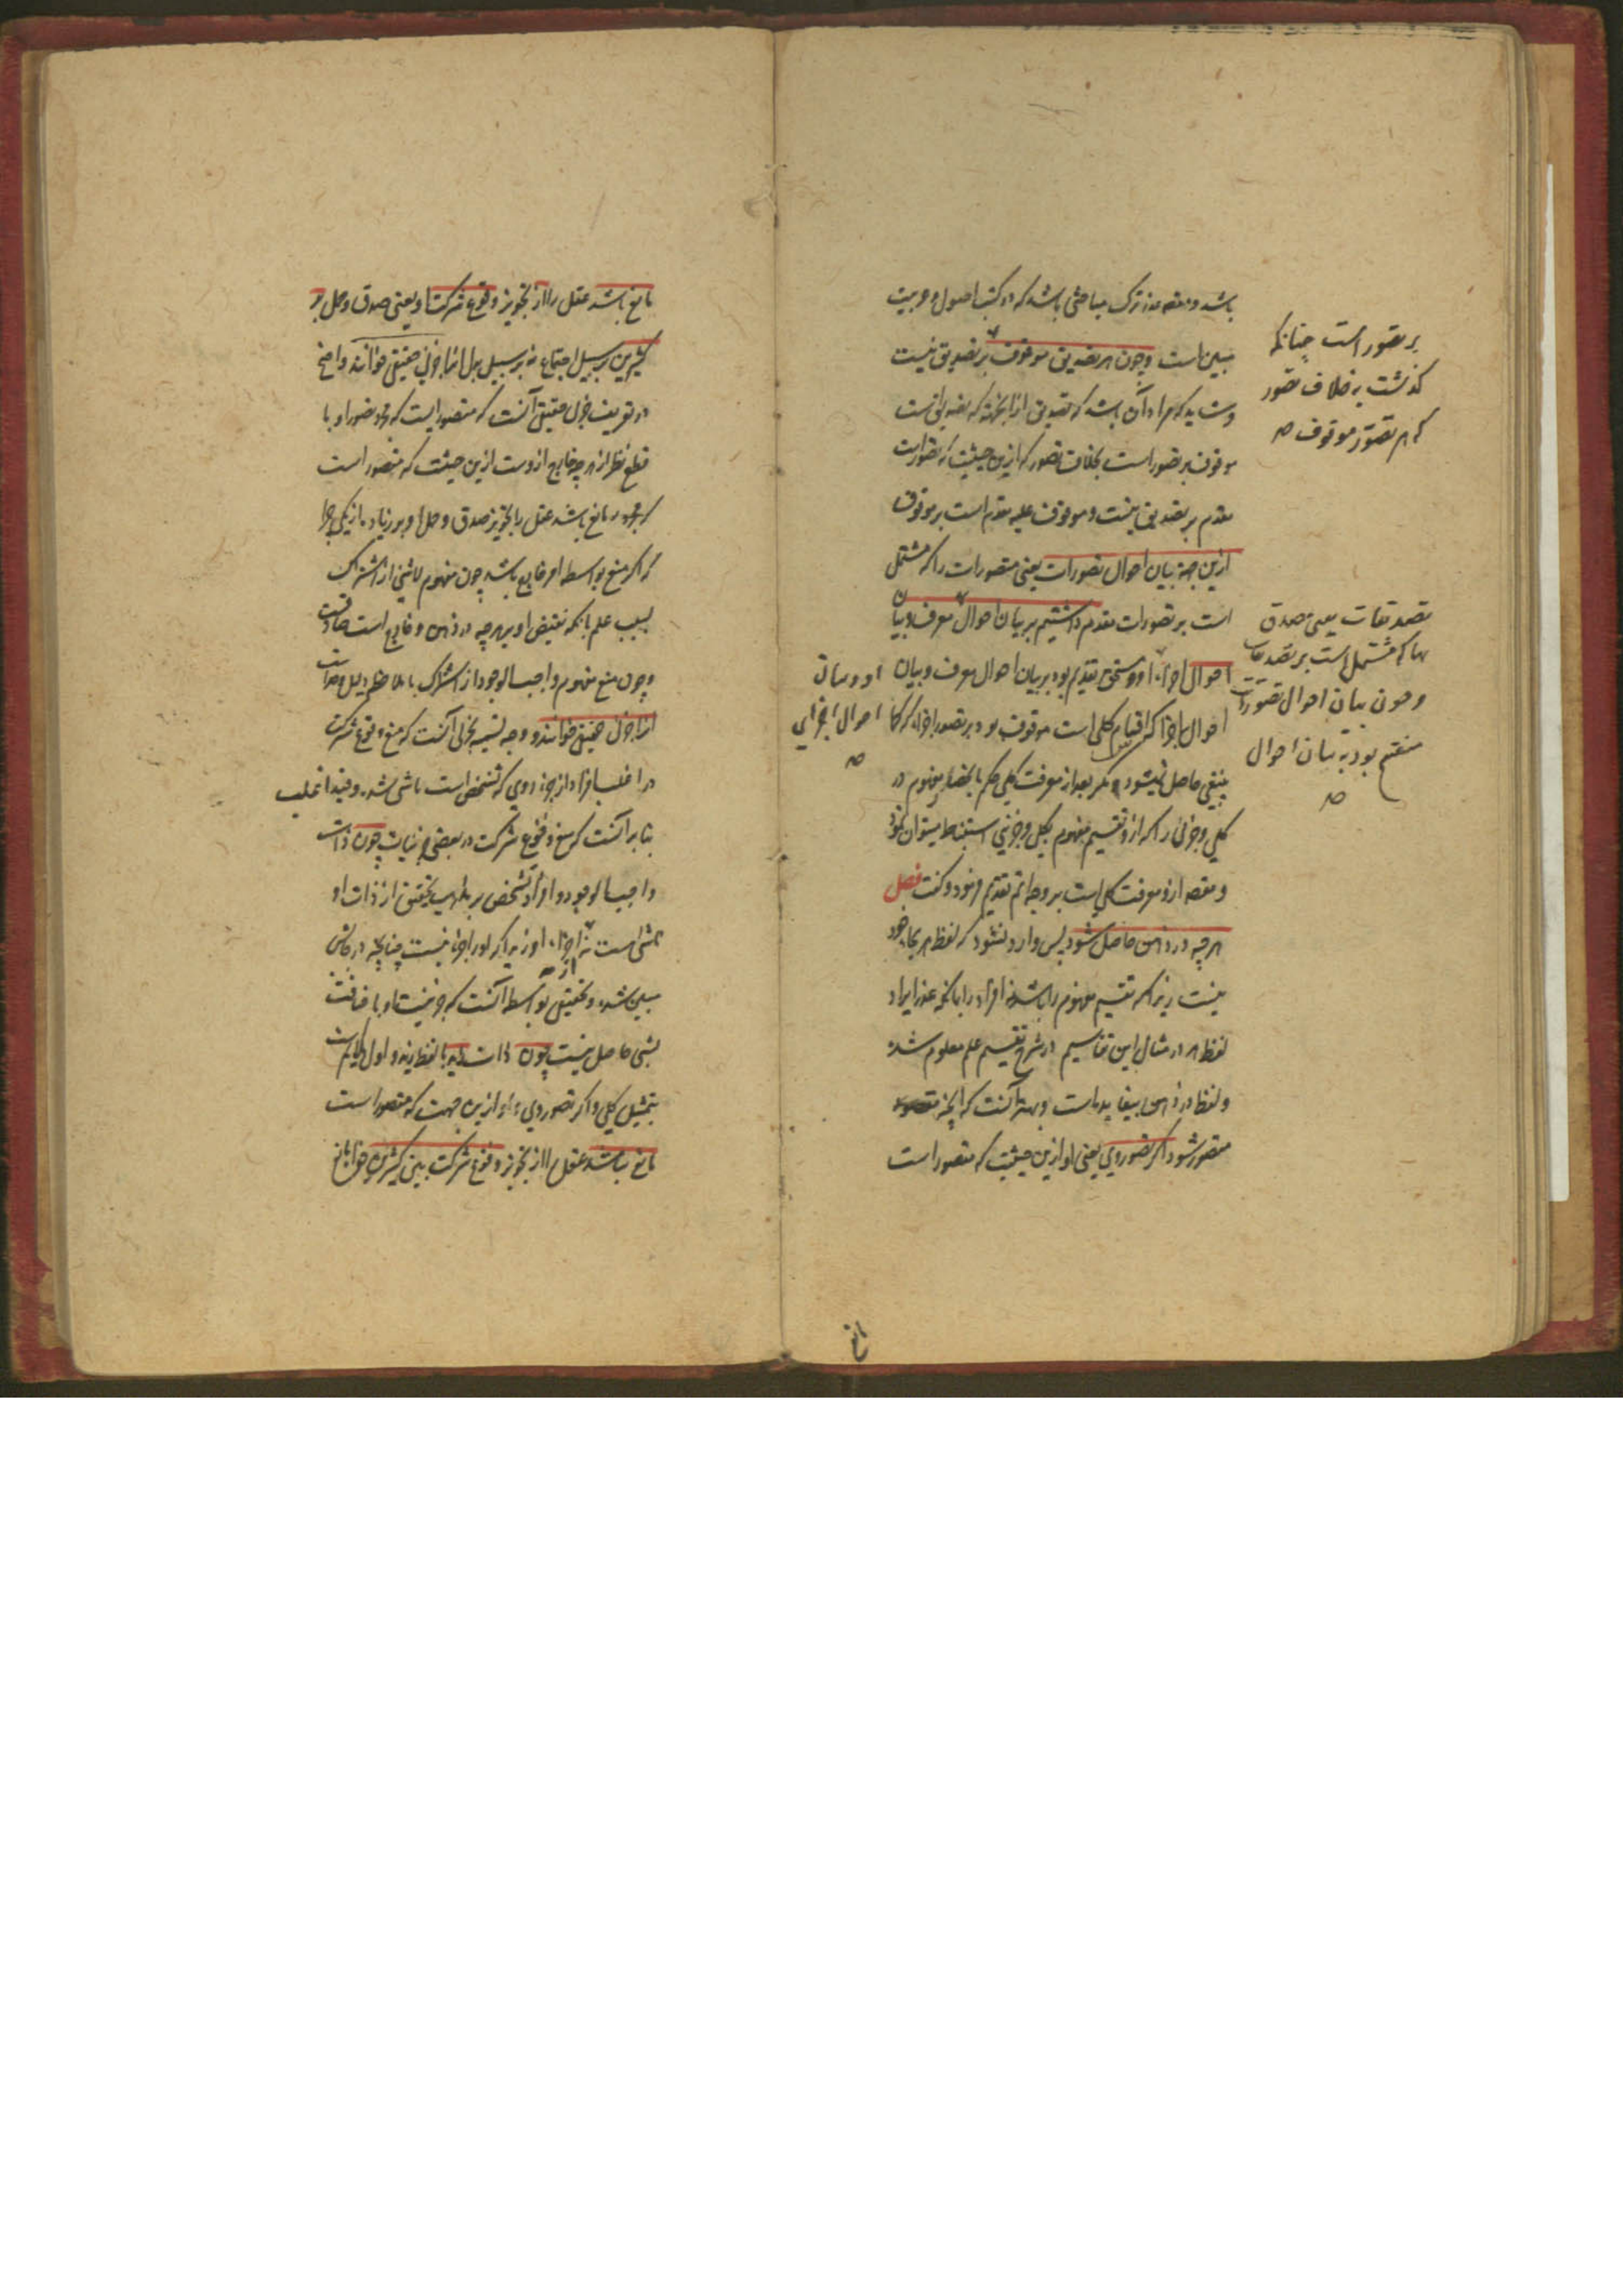 باشد و مقصد ترک مباحثی باشد که در کتب اصول و عربیت
مبین است و چون هر تصدیق موقوف بر تصدیق نیست
و شاید که مراد آن باشد که تصدیق از آنجهة که تصدیق است
موقوف بر تصور است بخلاف تصور که ازین حیثیت که تصور است
مقدم بر تصدیق نیست و موقوف علیه مقدم است بر موقوف
ازین جهة بیان احوال تصورات یعنی متصورات را که مشتمل
است بر تصورات مقدم داشتیم بر بیان احوال معرف و بیان
احوال اجزاء او و مستحق تقدیم بود بر بیان احوال معرف و بیان
احوال اجزا که اقسام کلی است موقوف بود بر تصور اجزا که کما
ینبغی حاصل نمیشود مگر بعد از معرفت کلی حکم بانحصار مفهوم در
کلی و جزئی را که از و تقسیم مفهوم بکلی و جزئی استنباط میتوان نمود
و مقصد ازو معرفت کلی است بر وجه اتم تقدیم فرمود و گفت فصل
هر چه در ذهن حاصل شود پس وارد نشود که لفظ هر بجای خود
نیست زیرا که تقسیم مفهوم را باشد نه افراد را با آنکه عذر ایراد
لفظ هر در مثال این تقاسیم در شرح تقسیم علم معلوم شد
و لفظ در ذهن بیفایده است و بهتر آنست که آنچه
متصور شود اگر تصور وی یعنی او ازین حیثیت که متصور است
بر تصور است چنانکه
گذشت به خلاف تصور
که هر تصور موقوف
تصدیقات یعنی مصدق
بها که مشتمل است بر تصدیقات
و چون بیان احوال تصورات
منقسم بود به بیان احوال
او و بیان
احوال اجزای
مانع
مانع باشد عقل را از تجویز وقوع شرکت او یعنی صدق و حمل بر
کثیرین بر سبیل اجتماع نه بر سبیل بدل انرا جزئی حقیقی خوانند و اوضح
در تعریف جزئی حقیقی آنست که متصوریست که مجرد تصور او با
قطع نظر از هر چه خارج ازوست ازین حیثیت که متصور است
مانع باشد عقل را بتجویز صدق و حمل او بر زیاده از یکی چرا
که اگر منع بواسطه امر خارج باشد چون مفهوم لاشئ از اشتراک
بسبب علم بآنکه نقیض او بر هر چه در ذهن و خارج است صادقست
و چون منع مفهوم واجب الوجود از اشتراک با ملاحظه دلیل وحدانیت
انرا جزئی حقیقی خوانند و وجه تسمیه بجزئی آنست که منع وقوع شرکت
در اغلب افراد از جزء وی که تشخص است ناشی شده و قید اغلب
بنا بر آنست که منع وقوع شرکت در بعضی جزئیات چون ذات
واجب الوجود و افراد تشخص بر مذهب تحقیق از ذات او
ناشی است نه از اجزاء او زیرا که او را جزء نیست چنانچه در جایش
مبین شده و حقیقی بواسطه آنست که جزئیت او باضافت
بشئ حاصل نیست چون ذات زید یا لفظ زید و اول ملایم است
بتمثیل کلی و اگر تصور وی او ازین جهت که متصور است
مانع نباشد عقل را از تجویز وقوع شرکت بین کثیرین خواه مانع